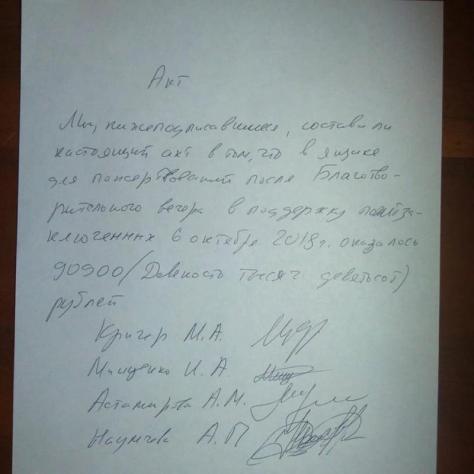 Акт
Мы, нижеподписавшиеся, составили
настоящий акт в том, что в ящике
для пожертвований после Благотво-
рительного вечера в поддержку политза-
ключенных 6 октября 2018г. оказалось
90900/Девяносто тысяч девятьсот)
рублей
Кригер М.А.
Мищенко И.А
Астамирова А.М.
Наумчева А.П